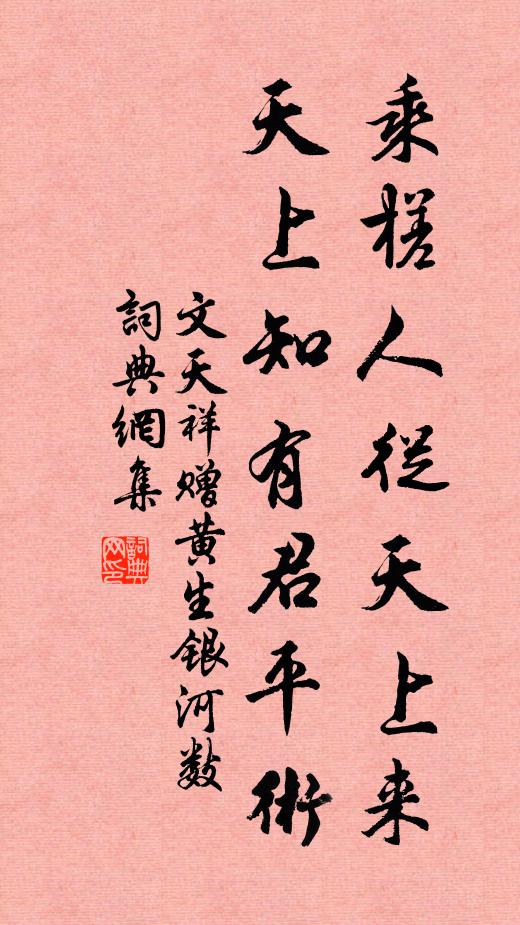 乘槎人從天上來
天上知有君平術
文天祥赠黄生銀河数
詞典網集
詞典网印